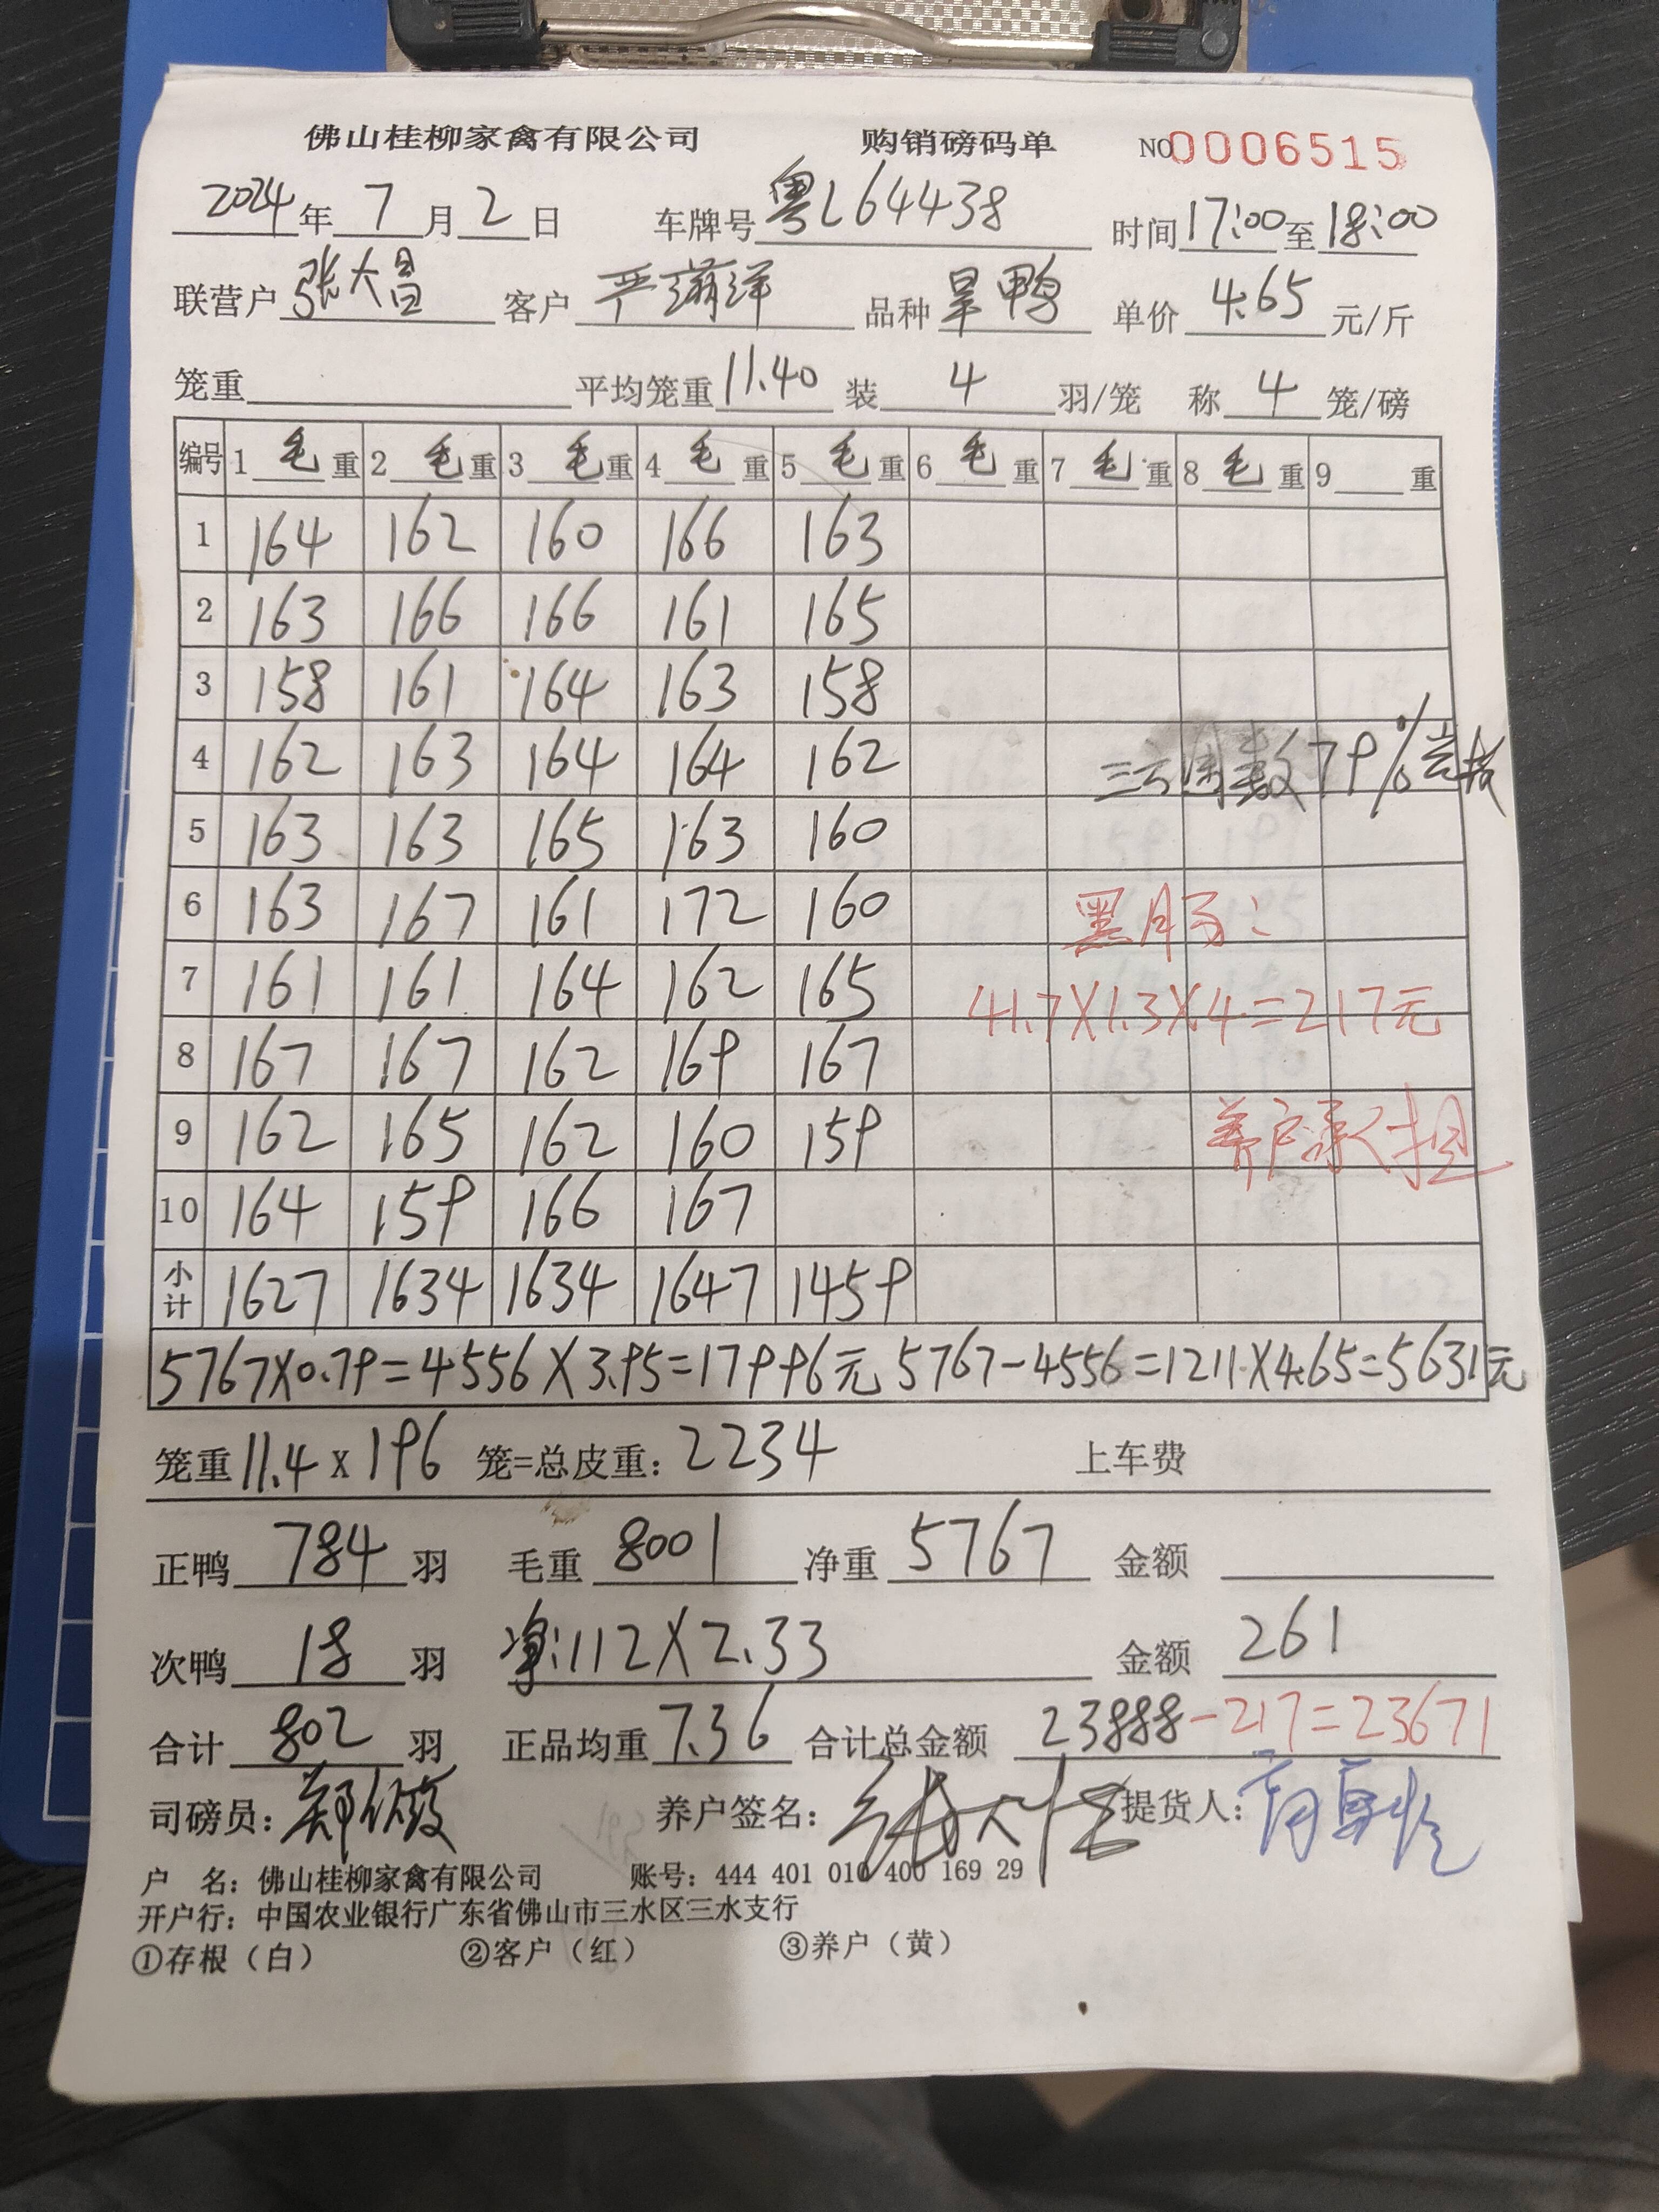 佛山桂柳家禽有限公司 购销磅码单 NO0006515
2024年7月2日 车牌号粤L64438 时间17:00至18:00
联营户张大昌 客户严 洋 品种旱鸭 单价4.65元/斤
笼重 平均笼重11.40 装4羽/笼 称4笼/磅
编号 1毛重 2毛重 3毛重 4毛重 5毛重 6毛重 7毛重 8毛重 9重
1 164 162 160 166 163
2 163 166 166 161 165
3 158 161 164 163 158
4 162 163 164 164 162
数79%
5 163 163 165 163 160
6 163 167 161 172 160
黑
7 161 161 164 162 165
41.7X1.3X4=217元
8 167 167 162 169 167
9 162 165 162 160 159
养户承担
10 164 159 166 167
小计 1627 1634 1634 1647 1459
5767X0.79=4556X3.95=17996元 5767-4556=1211X4.65=5631元
笼重11.4x196笼=总皮重：2234 上车费
正鸭784羽 毛重8001 净重5767 金额
次鸭18羽 净:112X2.33 金额261
合计802羽 正品均重7.36 合计总金额23888-217=23671
司磅员： 养户签名： 提货人：
户 名：佛山桂柳家禽有限公司 账号：444 401 010 400 169 29
开户行：中国农业银行广东省佛山市三水区三水支行
①存根（白） ②客户（红） ③养户（黄）